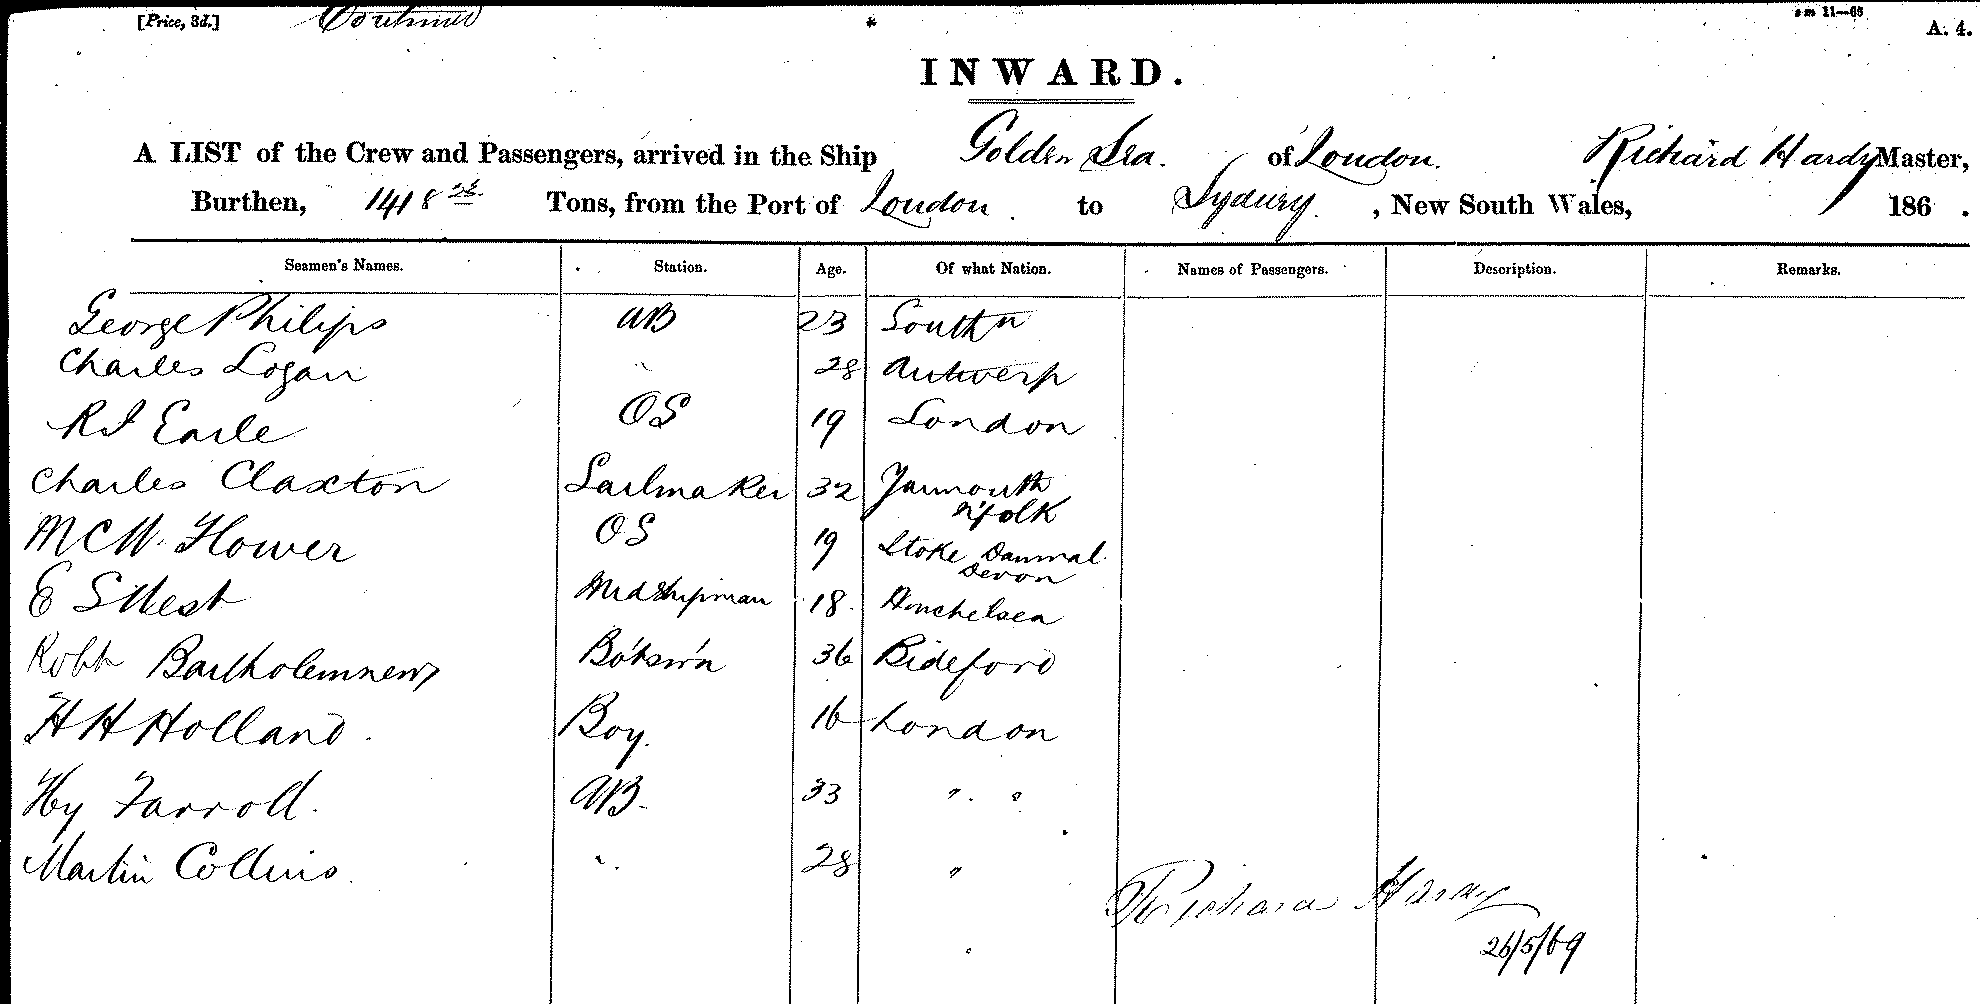 [Price, 3d.] Continued 11—68 A. 4.
INWARD.
A LIST of the Crew and Passengers, arrived in the Ship Golden Sea. of London. Richard Hardy Master,
Burthen, 1418 Tons, from the Port of London. to Sydney. , New South Wales, 186 .
Seamen's Names. Station. Age. Of what Nation. Names of Passengers. Description. Remarks.
George Philips AB 23 Southn
Charles Logan " 28 Antwerp
Earle OS 19 London
Charles Claxton Sailmaker 32 Yarmouth
Nfolk
McW. Flower OS 19 Stoke Dammal
Devon
E S West Midshipman 18.
Robt Bartholemnew Bo'tsw'n 36 Bideford
H H Holland. Boy. 16 London
Hy Farroll. AB. 33 " "
Martin Collins. " 28 "
Richard Hardy
26/5/69